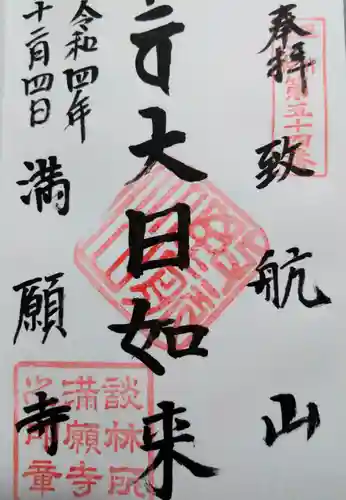 奉拝
致航山
大日如来
令和四年
十二月四日
満願寺
談林所
満願寺